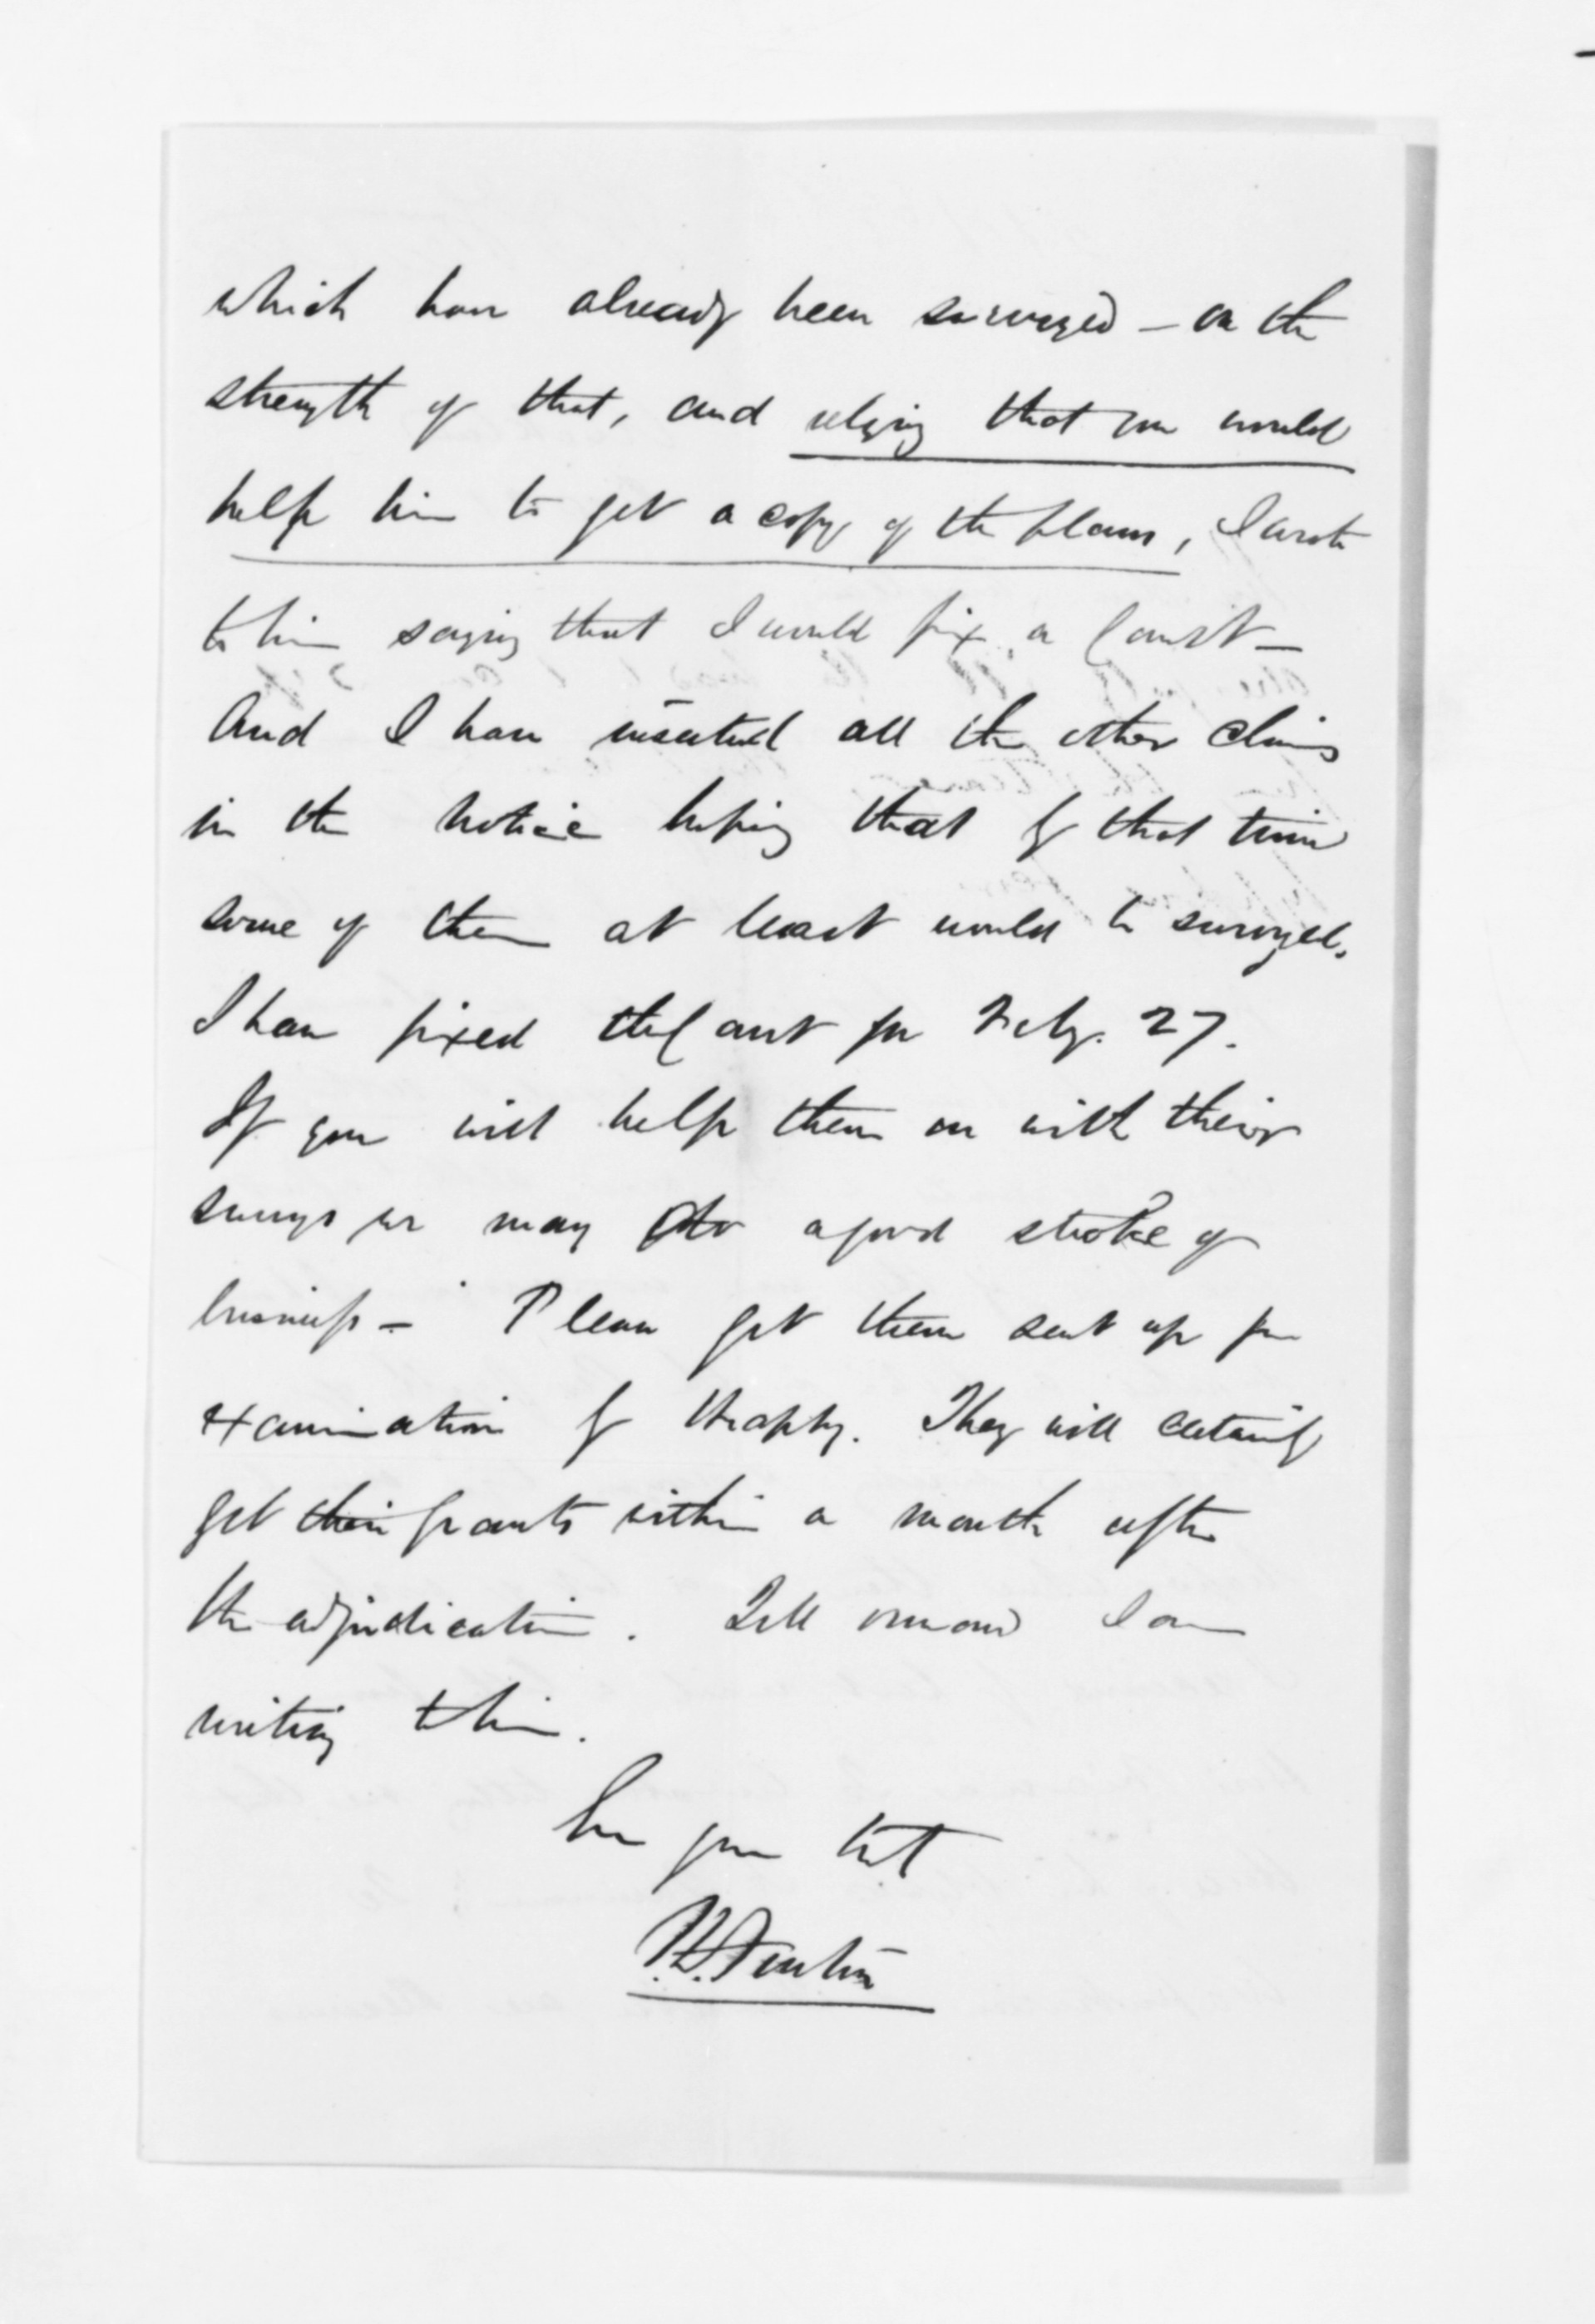 which have already been surveyed – on the
strength of that, and relying that you would
help him to get a copy of the plans, I wrote
to him saying that I would fix a Court –
And I have inserted all the other claims
in the notice hoping that by that time
some of them at least would be surveyed.
I have fixed the Court for Feby. 27.
If you will help them on with their
surveys we may do a good stroke of
business – Please get them sent up for
examination by Heaphy. They will certainly
get their grants within a month after
the adjudication. Tell Ormond I am
writing to him.
In gt. haste
F.D. Fenton